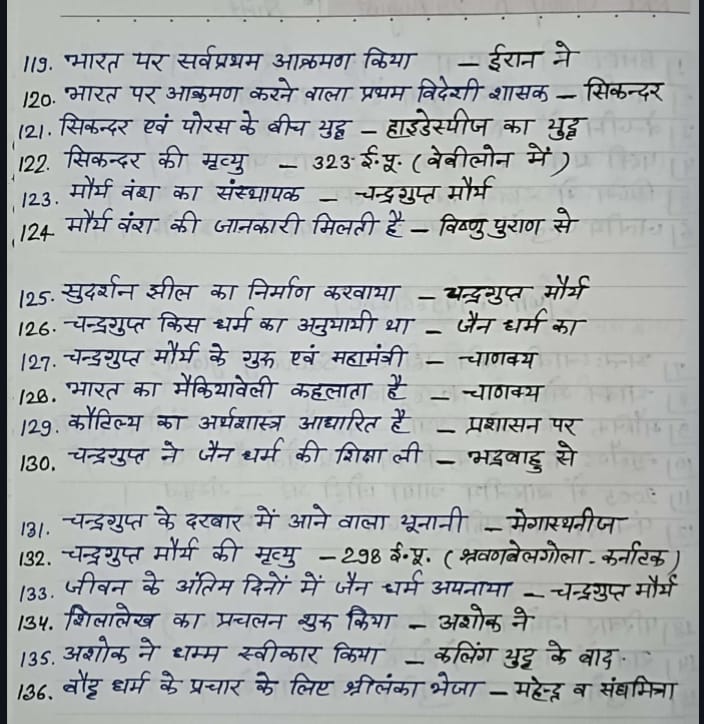 119. भारत पर सर्वप्रथम आक्रमण किया – ईरान ने
120. भारत पर आक्रमण करने वाला प्रथम विदेशी शासक – सिकन्दर
121. सिकन्दर एवं पोरस के बीच युद्ध – हाइडेस्पीज का युद्ध
122. सिकन्दर की मृत्यु – 323 ई.पू. (बेबीलोन में)
123. मौर्य वंश का संस्थापक – चन्द्रगुप्त मौर्य
124. मौर्य वंश की जानकारी मिलती है – विष्णु पुराण से
125. सुदर्शन झील का निर्माण करवाया – चन्द्रगुप्त मौर्य
126. चन्द्रगुप्त किस धर्म का अनुयायी था – जैन धर्म का
127. चन्द्रगुप्त मौर्य के गुरू एवं महामंत्री – चाणक्य
128. भारत का मैकियावेली कहलाता है – चाणक्य
129. कौटिल्य का अर्थशास्त्र आधारित है – प्रशासन पर
130. चन्द्रगुप्त ने जैन धर्म की शिक्षा ली – भद्रबाहु से
131. चन्द्रगुप्त के दरबार में आने वाला यूनानी – मेगास्थनीज
132. चन्द्रगुप्त मौर्य की मृत्यु – 298 ई.पू. (श्रवणबेलगोला - कर्नाटक)
133. जीवन के अंतिम दिनों में जैन धर्म अपनाया – चन्द्रगुप्त मौर्य
134. शिलालेख का प्रचलन शुरू किया – अशोक ने
135. अशोक ने धम्म स्वीकार किया – कलिंग युद्ध के बाद.
136. बौद्ध धर्म के प्रचार के लिए श्रीलंका भेजा – महेन्द्र व संघमित्रा